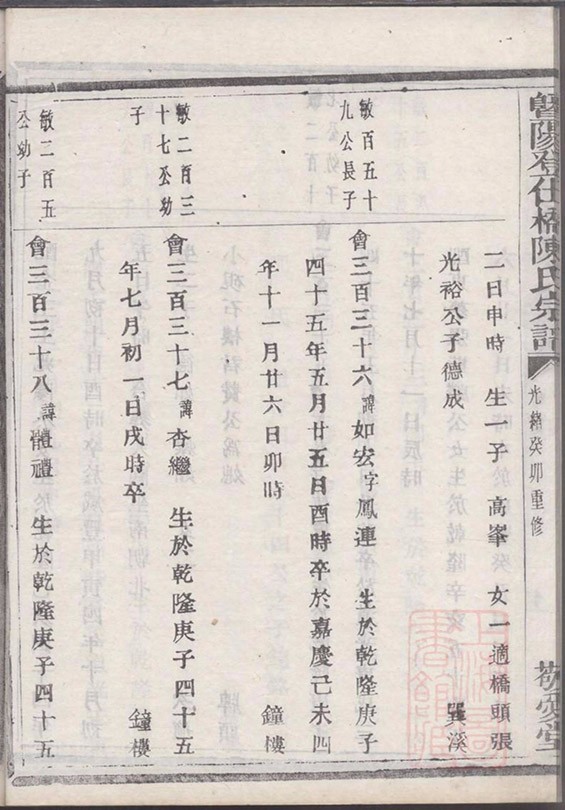 暨陽登仕橋陳氏宗譜
光緒癸卯重修
敬愛堂
二日申時 生一子 高峯 女一適橋頭張
光裕公子德成 巽溪
敏百五十九公長子
會三百三十六諱如宏字鳳連 生於乾隆庚子
四十五年五月廿五日酉時卒於嘉慶己未四
年十一月廿六日卯時 鐘樓
敏二百三十七公幼子
會三百三十七諱杏繼 生於乾隆庚子四十五
年七月初一日戌時卒 鐘樓
敏二百五公幼子
會三百三十八諱體禮 生於乾隆庚子四十五